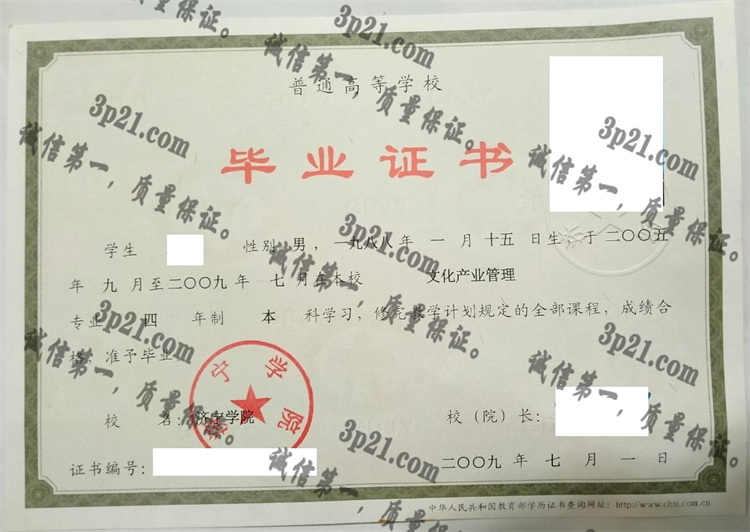 普通高等学校
毕业证书
学生 性别 男，一九八八年 一 月 十五 日生，于 二〇〇五
年 九 月至二〇〇九 年 七 月在本校 文化产业管理
专业 四 年制 本 科学习，修完教学计划规定的全部课程，成绩合
格，准予毕业
济宁学院
校 名：济宁学院 校（院）长：
证书编号： 二〇〇九 年 七 月 一 日
中华人民共和国教育部学历证书查询网址：http://www.chsi.com.cn
3p21.com
诚信第一，质量保证。
3p21.com
诚信第一，质量保证。
3p21.com
诚信第一，质量保证。
3p21.com
诚信第一，质量保证。
3p21.com
诚信第一，质量保证。
3p21.com
诚信第一，质量保证。
3p21.com
诚信第一，质量保证。
3p21.com
诚信第一，质量保证。